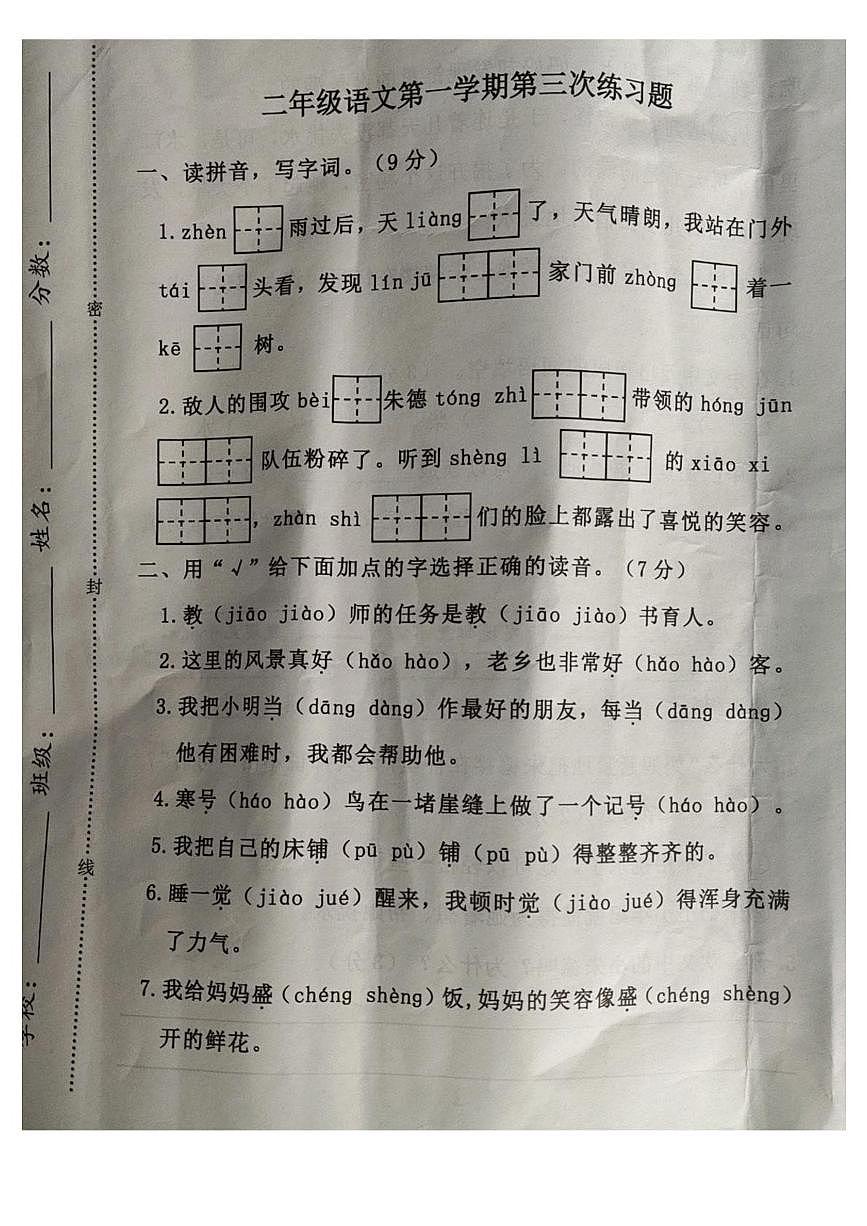 二年级语文第一学期第三次练习题
一、读拼音，写字词。（9分）
1.zhèn 雨过后，天 liàng 了，天气晴朗，我站在门外
tái 头看，发现 lín jū 家门前 zhòng 着一
kē 树。
2.敌人的围攻 bèi 朱德 tóng zhì 带领的 hóng jūn
队伍粉碎了。听到 shèng lì 的 xiāo xi
，zhàn shì 们的脸上都露出了喜悦的笑容。
二、用“√”给下面加点的字选择正确的读音。（7分）
1.教（jiāo jiào）师的任务是教（jiāo jiào）书育人。
2.这里的风景真好（hǎo hào），老乡也非常好（hǎo hào）客。
3.我把小明当（dāng dàng）作最好的朋友，每当（dāng dàng）
他有困难时，我都会帮助他。
4.寒号（háo hào）鸟在一堵崖缝上做了一个记号（háo hào）。
5.我把自己的床铺（pū pù）铺（pū pù）得整整齐齐的。
6.睡一觉（jiào jué）醒来，我顿时觉（jiào jué）得浑身充满
了力气。
7.我给妈妈盛（chéng shèng）饭，妈妈的笑容像盛（chéng shèng）
开的鲜花。
学校：
班级：
姓名：
分数：
密
封
线